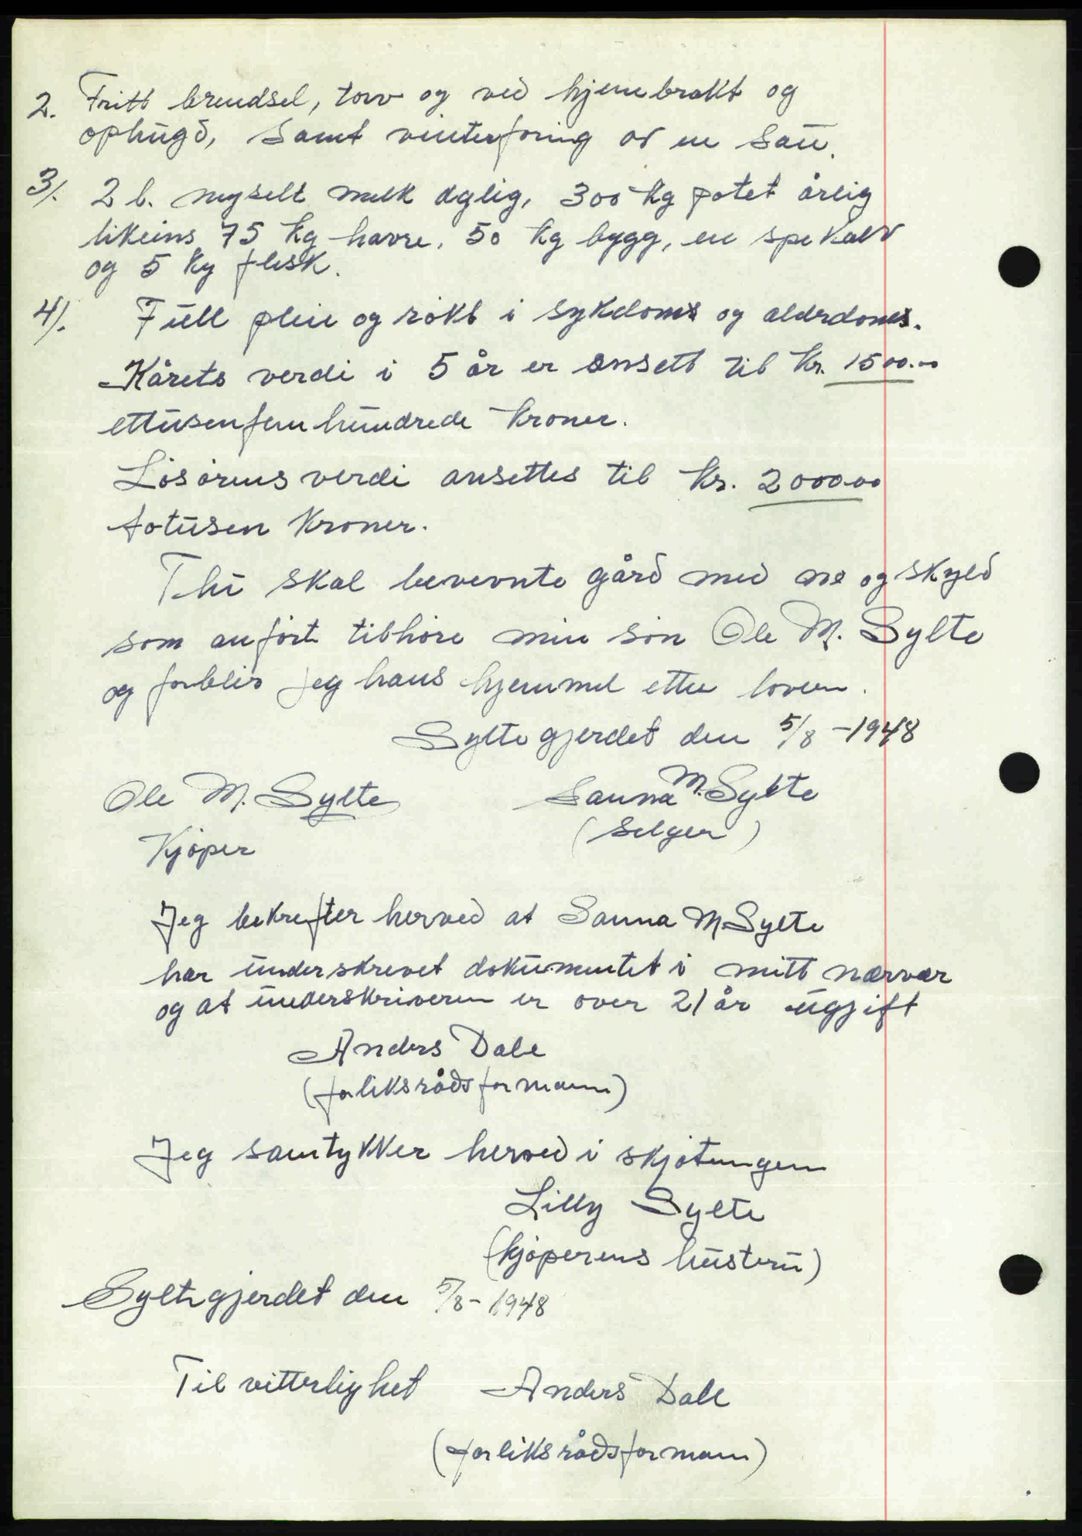 2. Fritt brendsel, torv og ved hjemebrakt og
ophugd, samt vinterforing av en sau.
3/. 2 l. nysilt melk dglig, 300 kg potet årlig
likeins 75 kg havre, 50 kg bygg, en spekalv
og 5 kg flesk.
4/. Full pleie og røkt i sykdoms og alderdoms.
Kårets verdi i 5 år er ansett til kr. 1500.00
ettusenfemhundrede kroner.
Løsørens verdi ansettes til kr. 2000.00
totusen kroner.
Thi skal bevernte gård med nr og skyld
som anført tilhøre min søn Ole M. Sylte
og forblir jeg hans hjemmel etter loven.
Syltegjerdet den 5/8 - 1948
Ole M. Sylte Sanna M. Sylte
Kjøper (Selger)
Jeg bekrefter herved at Sanna M Sylte
har underskrevet dokumentet i mitt nærvær
og at underskriveren er over 21 år ugjift
Anders Dale
(forliksrådsformann)
Jeg samtykker herved i skjøtningen
Lilly Sylte
(kjøperens hustru)
Syltegjerdet den 5/8 - 1948
Til vitterlighet Anders Dale
(forliksrådsformann)